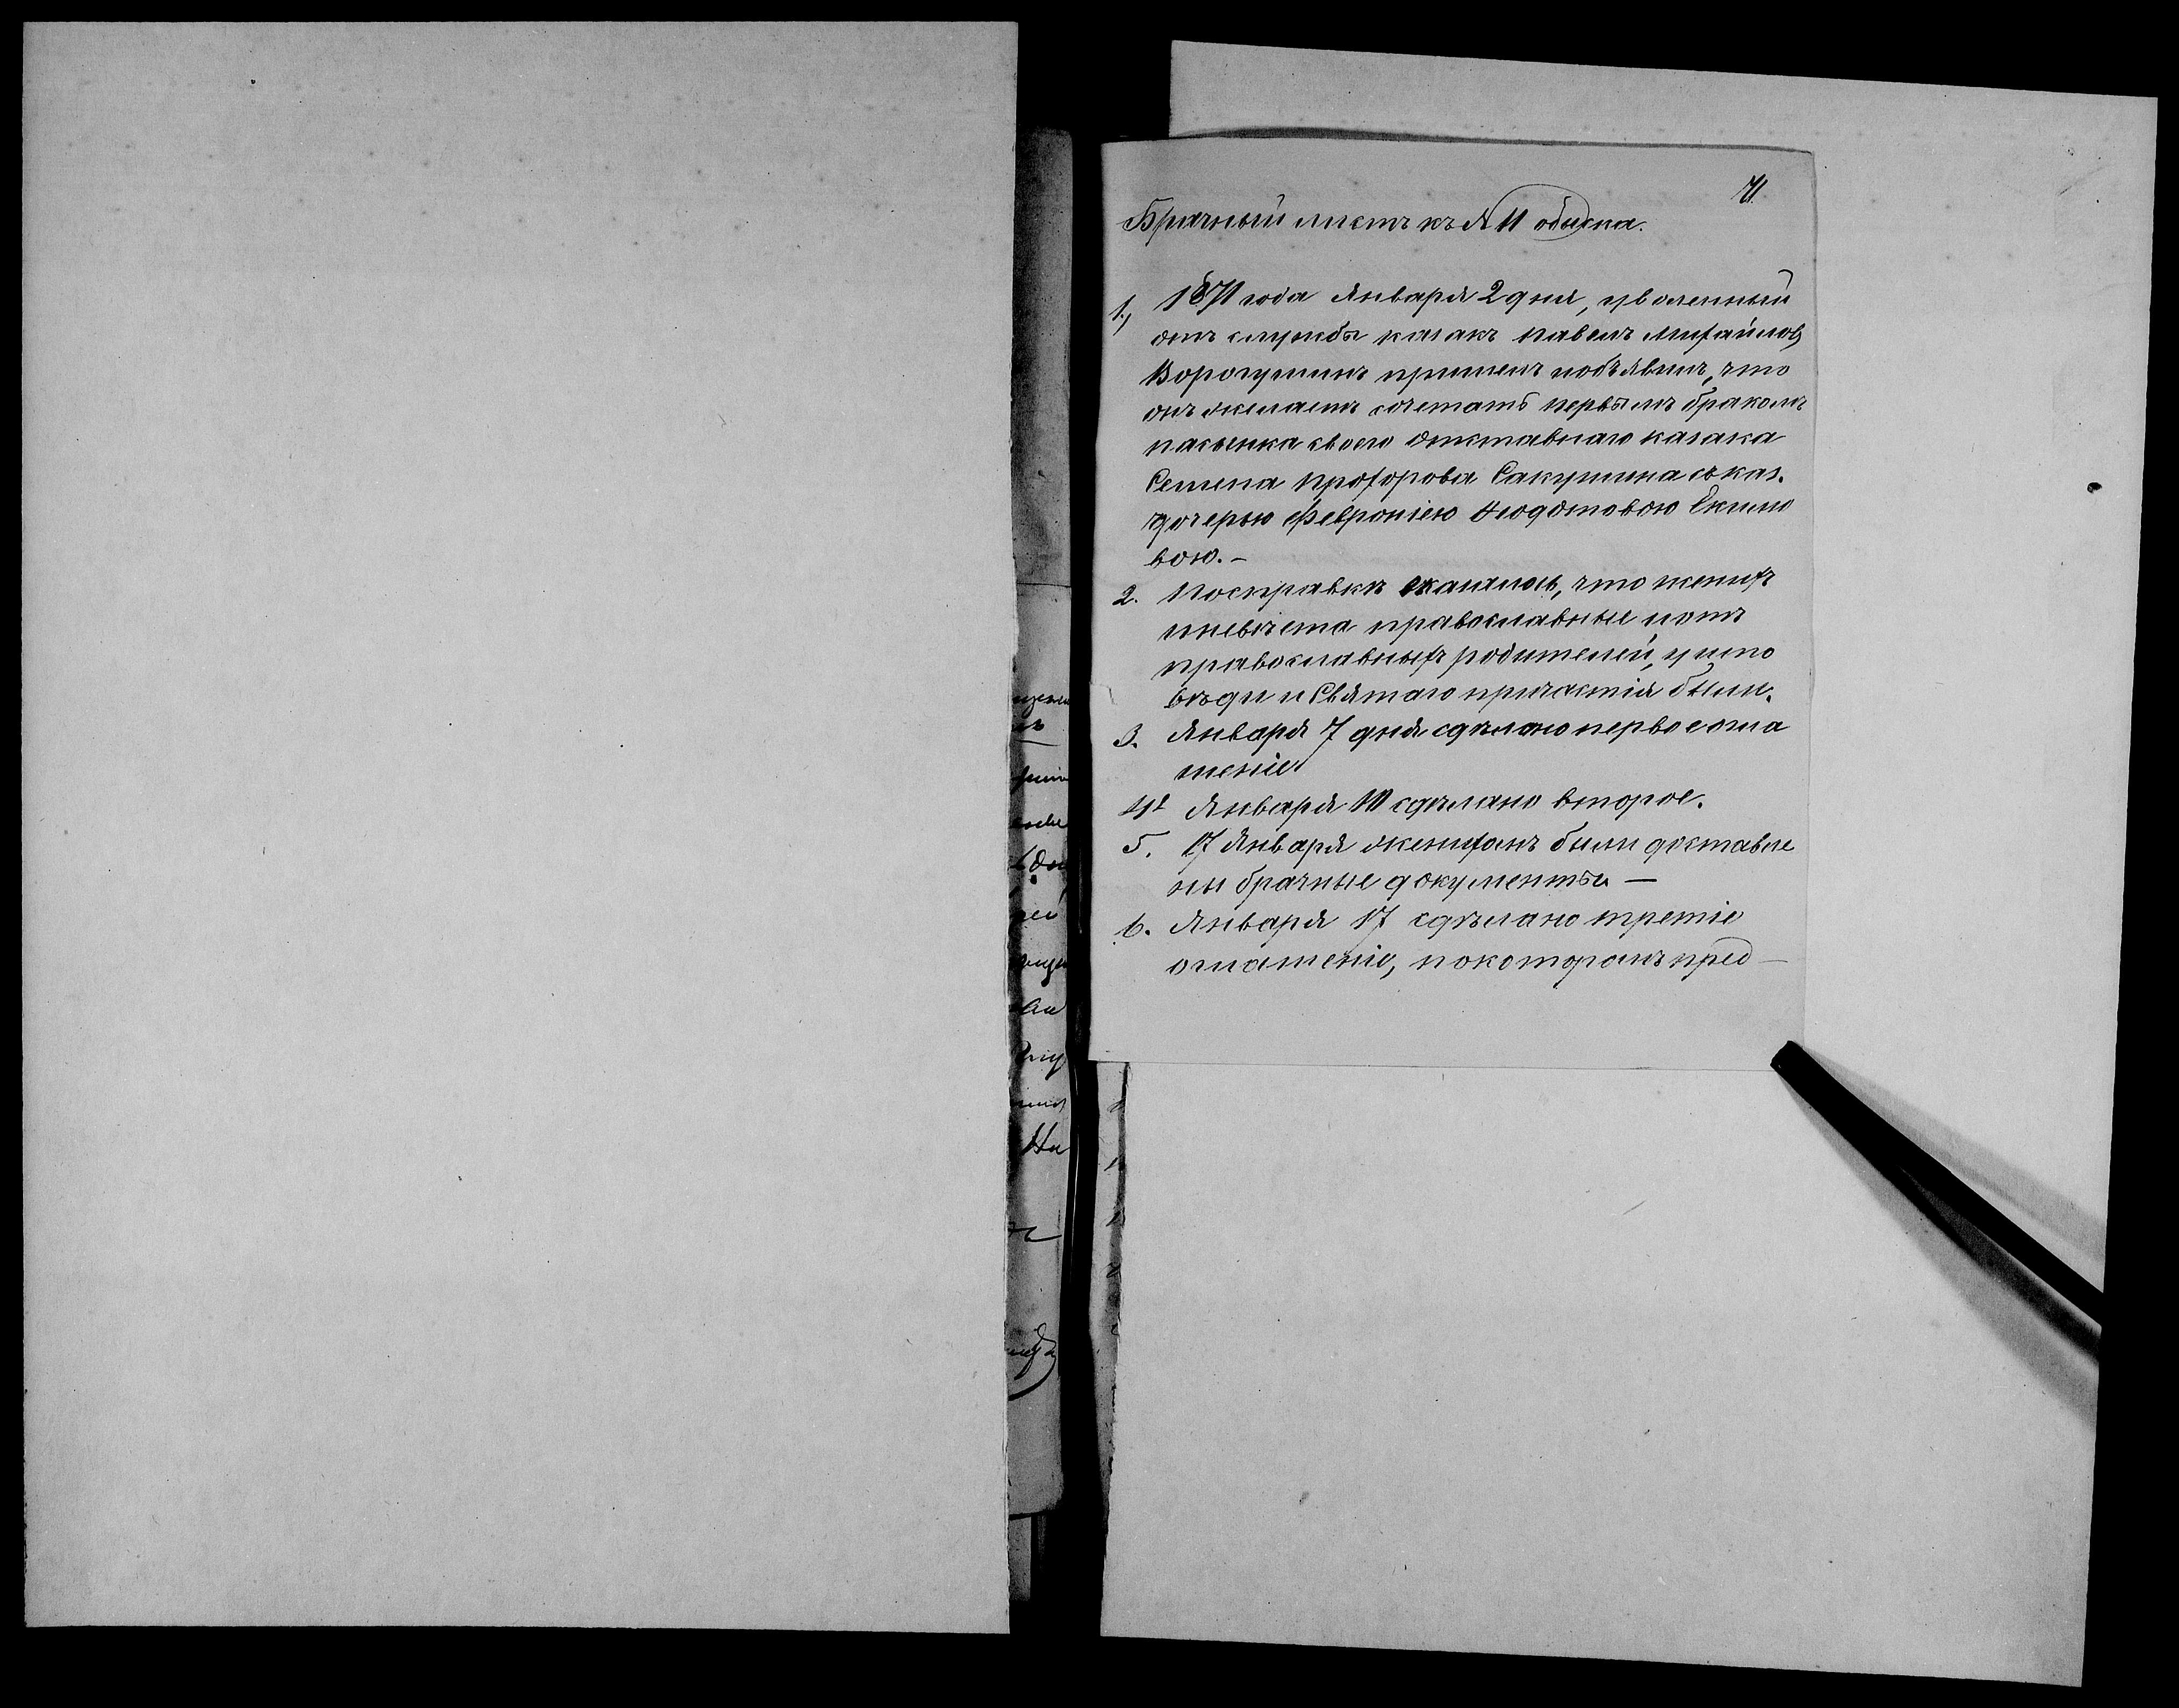 71.
Брачный листъ къ № 11 обыска.
1., 1871 года Января 2 дня, уволенный
отъ службы казакъ Павелъ Михайловъ
Ворогушинъ пришелъ иобъявилъ, что
онъ желаетъ сочетать первымъ бракомъ
пасынка своего отставнаго казака
Семена Прохорова Сакушина съ каз.
дочерью Февроніею Ѳеодотовою Екимо
вою.-
2. Посправкѣ оказалось, что женихъ
иневѣста православные иотъ
православныхъ родителей, у испо
вѣди и Святаго причастія были.
3. Января 7 дня сдѣлано первое огла
шеніе
4. Января 10 сдѣлано второе.
5. 17 Января женихомъ были доставле
ны брачные документы —
6. Января 17 сдѣлано третіе
оглашеніе, покоторомъ пред-